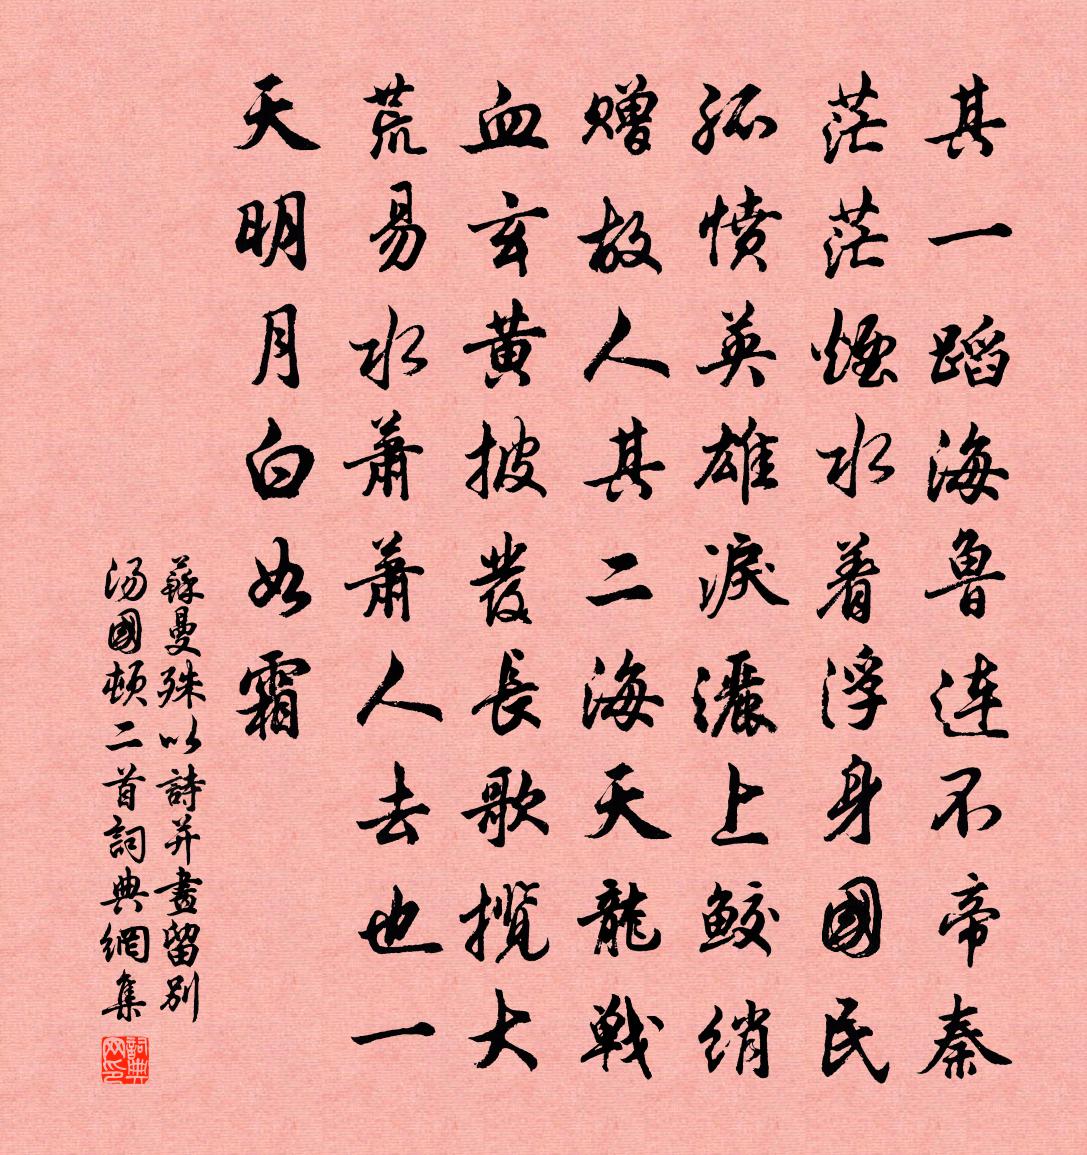 其一蹈海鲁连不帝秦
茫茫煙水着浮身國民
孤憤英雄淚灑上鮫绡
赠故人其二海天龍戰
血玄黄披發長歌揽大
荒易水蕭蕭人去也一
天明月白如霜
蘇曼殊以詩并畫留别
湯國頓二首詞典網集
詞典网印